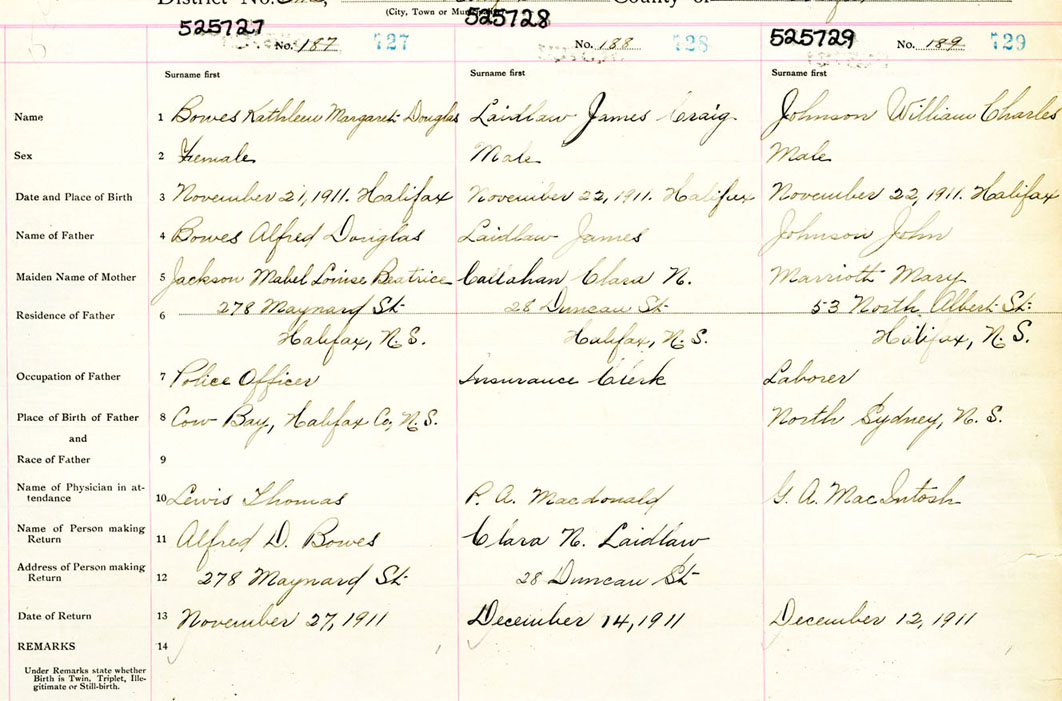 District No. County of
(City, Town or
525727 525728 525729
No. 187 727 No. 188 728 No. 189 729
Surname first Surname first Surname first
Name 1 Bowes Kathleen Margaret Douglas Laidlaw James Craig. Johnson William Charles
Sex 2 Female Male Male
Date and Place of Birth 3 November 21, 1911. Halifax November 22, 1911. Halifax November 22, 1911. Halifax
Name of Father 4 Bowes Alfred Douglas Laidlaw James Johnson John
Maiden Name of Mother 5 Jackson Mabel Louise Beatrice Callahan Clara N. Marriott Mary
Residence of Father 6 278 Maynard St. 28 Duncan St. 53 North Albert St.
Halifax, N.S. Halifax, N.S. Halifax, N.S.
Occupation of Father 7 Police Officer Insurance Clerk Laborer
Place of Birth of Father 8 Cow Bay, Halifax Co, N.S. North Sydney, N.S.
and
Race of Father 9
Name of Physician in at-
tendance 10 Lewis Thomas P. A. Macdonald G. A. MacIntosh
Name of Person making
Return 11 Alfred D. Bowes Clara N. Laidlaw
Address of Person making
Return 12 278 Maynard St. 28 Duncan St.
Date of Return 13 November 27, 1911 December 14, 1911 December 12, 1911
REMARKS 14
Under Remarks state whether
Birth is Twin, Triplet, Ille-
gitimate or Still-birth.